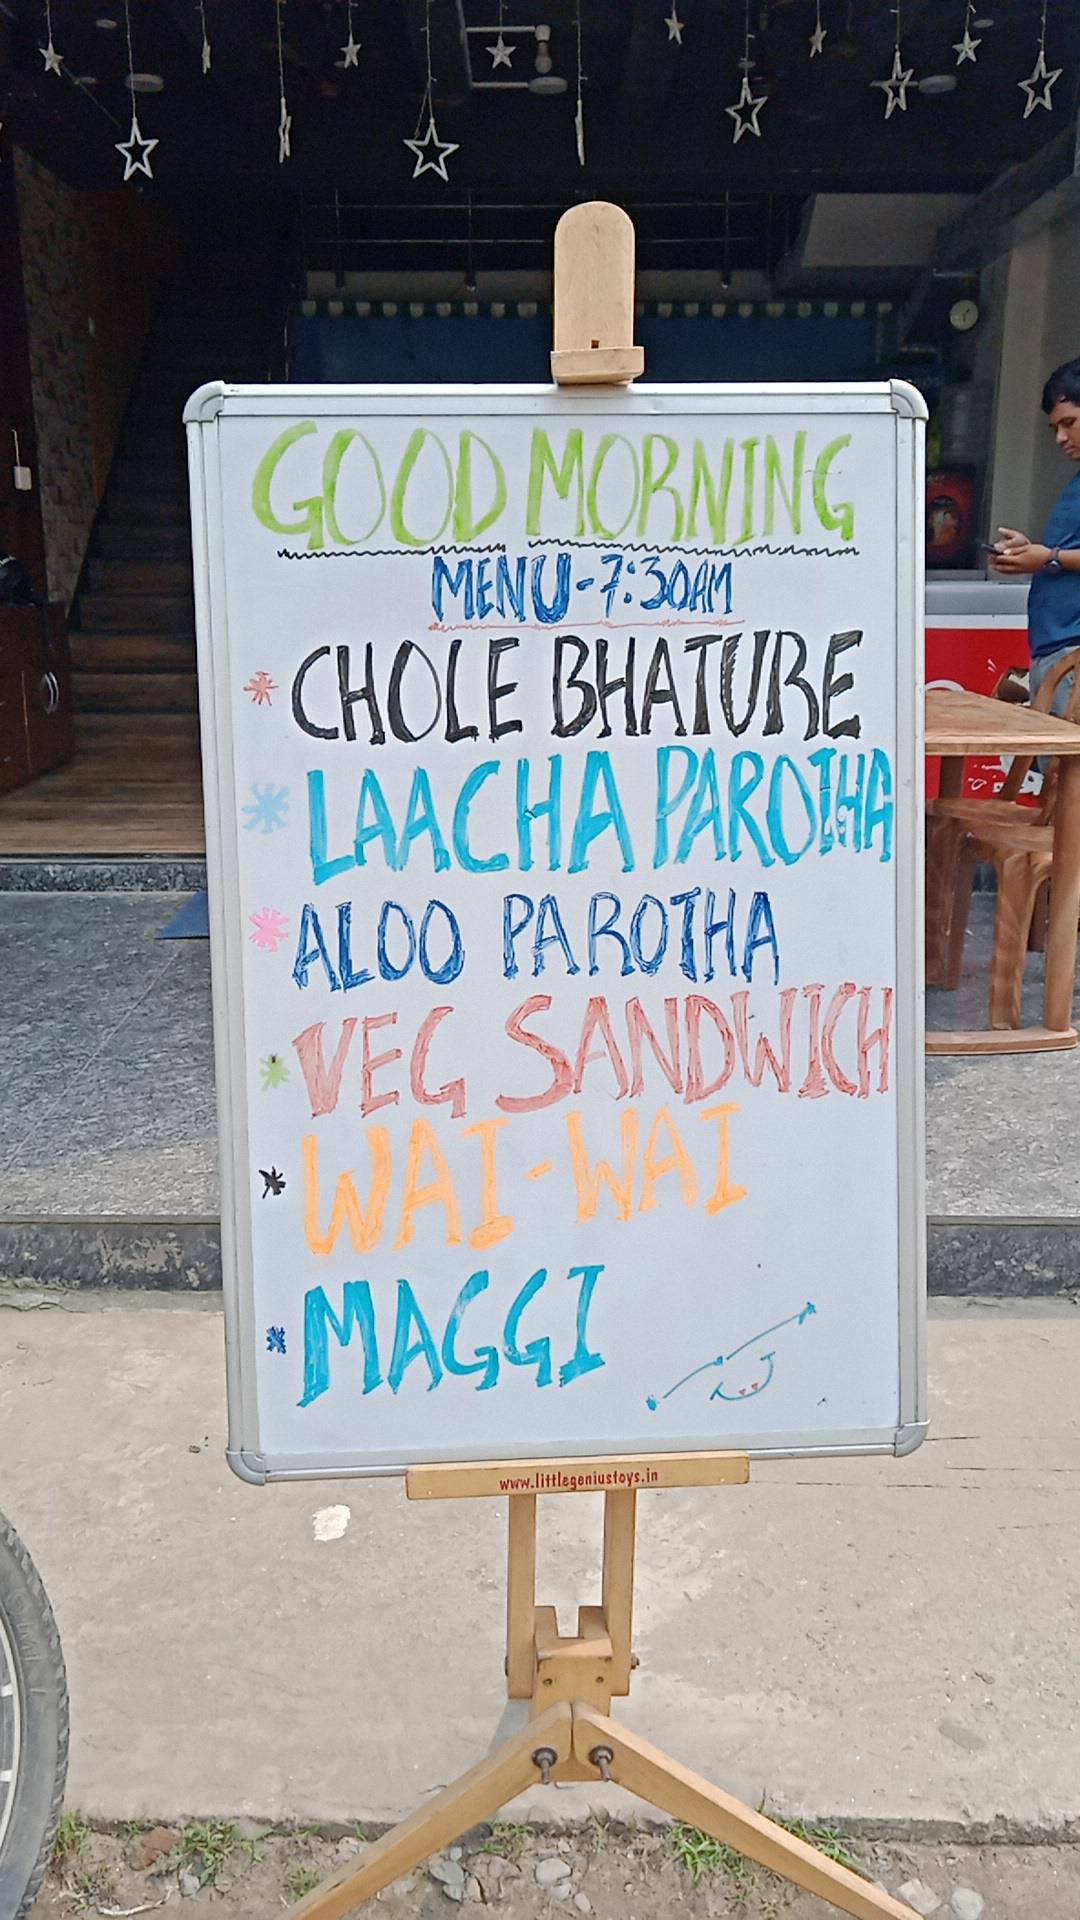 GOOD MORNING
MENU-7:30AM
* CHOLE BHATURE
* LAACHA PAROTHA
* ALOO PAROTHA
* VEG SANDWICH
* WAI-WAI
* MAGGI
www.littlegeniustoys.in